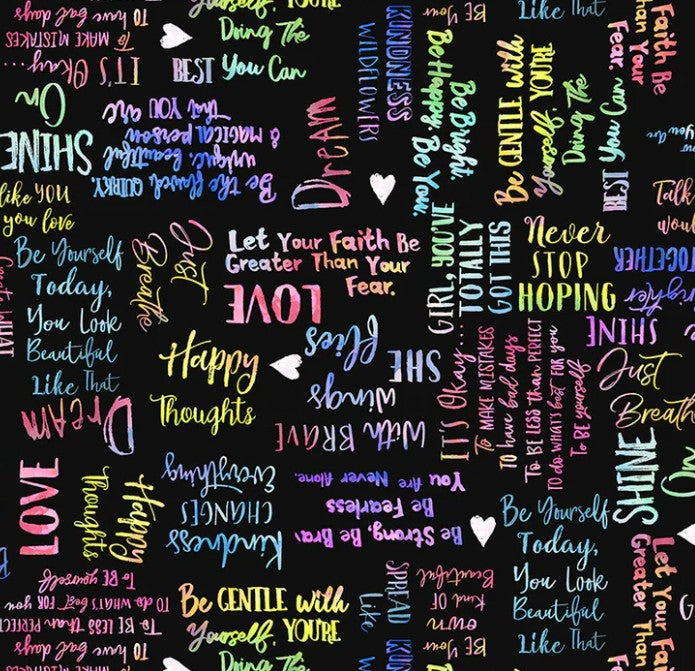 To have bad days
To MAKE MISTAKES
IT'S Okay...
Yourself. YOU'RE
Doing The
BEST You Can
WILDFLOWERS
KINDNESS
Be Your
Like That
Faith Be
Than Your
Fear.
On
SHINE
Be the flawed, QUIRKY,
unique, beautiful
& MAGICAL person
that YOU are
DREAM
Be Bright.
Be Happy. Be You.
Be GENTLE with
Yourself. YOU'RE
Doing The
BEST You Can
like YOU
you love
Talk
TOGETHER
Be Yourself
Today,
You Look
Beautiful
Like That
Just
Breathe
Let Your Faith Be
Greater Than Your
Fear.
LOVE
GIRL, YOU'VE
TOTALLY
GOT THIS
Never
STOP
HOPING
SHINE
WHAT
Happy
Thoughts
SHE
Flies
Wings
With BRAVE
IT'S Okay...
To MAKE MISTAKES
To have bad days
To BE LESS than PERFECT
TO do WHAT'S best FOR you
To BE yourself
Just
Breath
DREAM
LOVE
Happy
Thoughts
Kindness
CHANGES
Everything
Be Strong, Be Bra
Be Fearless
You Are Never Alone.
SHINE
On
Be Yourself
Today,
You Look
Beautiful
Like That
Let Your
Greater Than
To BE yourself
TO do WHAT'S best FOR you
To BE LESS than PERFECT
To have bad days
To MAKE MISTAKES
Be GENTLE with
Yourself. YOU'RE
Doing The
SPREAD
Like
KINDNESS
WILDFLOWERS
Be Your
own
Kind OF
Beautiful